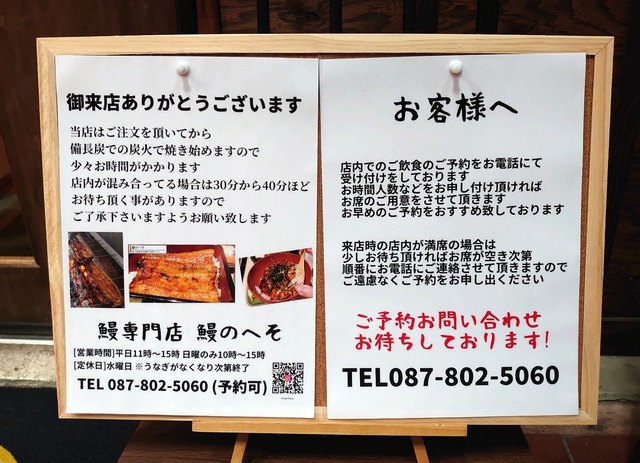 御来店ありがとうございます
当店はご注文を頂いてから
備長炭での炭火で焼き始めますので
少々お時間がかかります
店内が混み合ってる場合は30分から40分ほど
お待ち頂く事がありますので
ご了承下さいますようお願い致します
鰻専門店 鰻のへそ
[営業時間]平日11時〜15時 日曜のみ10時〜15時
[定休日]水曜日 ※うなぎがなくなり次第終了
TEL 087-802-5060 (予約可)
お客様へ
店内でのご飲食のご予約をお電話にて
受け付けをしております
お時間人数などをお申し付け頂ければ
お席のご用意をさせて頂きます
お早めのご予約をおすすめ致しております
来店時の店内が満席の場合は
少しお待ち頂ければお席が空き次第
順番にお電話にご連絡させて頂きますので
ご遠慮なくご予約をお申し出ください
ご予約お問い合わせ
お待ちしております!
TEL087-802-5060